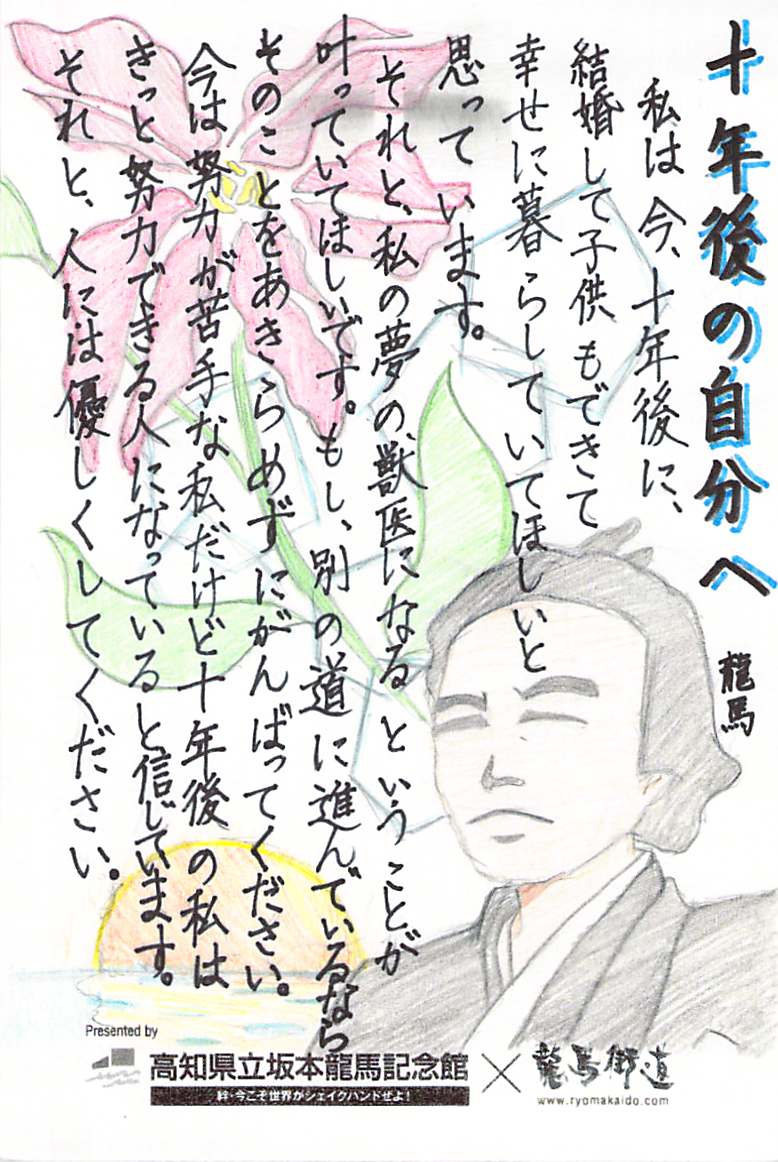 十年後の自分へ
龍馬
私は今、十年後に、
結婚して子供もできて
幸せに暮らしていてほしいと
思っています。
それと、私の夢の獣医になるということが
叶っていてほしいです。もし、別の道に進んでいるなら
そのことをあきらめずにがんばってください。
今は努力が苦手な私だけど十年後の私は
きっと努力できる人になっていると信じています。
それと、人には優しくしてください。
Presented by
高知県立坂本龍馬記念館×龍馬街道
絆・今こそ世界がシェイクハンドせよ!
www.ryomakaido.com